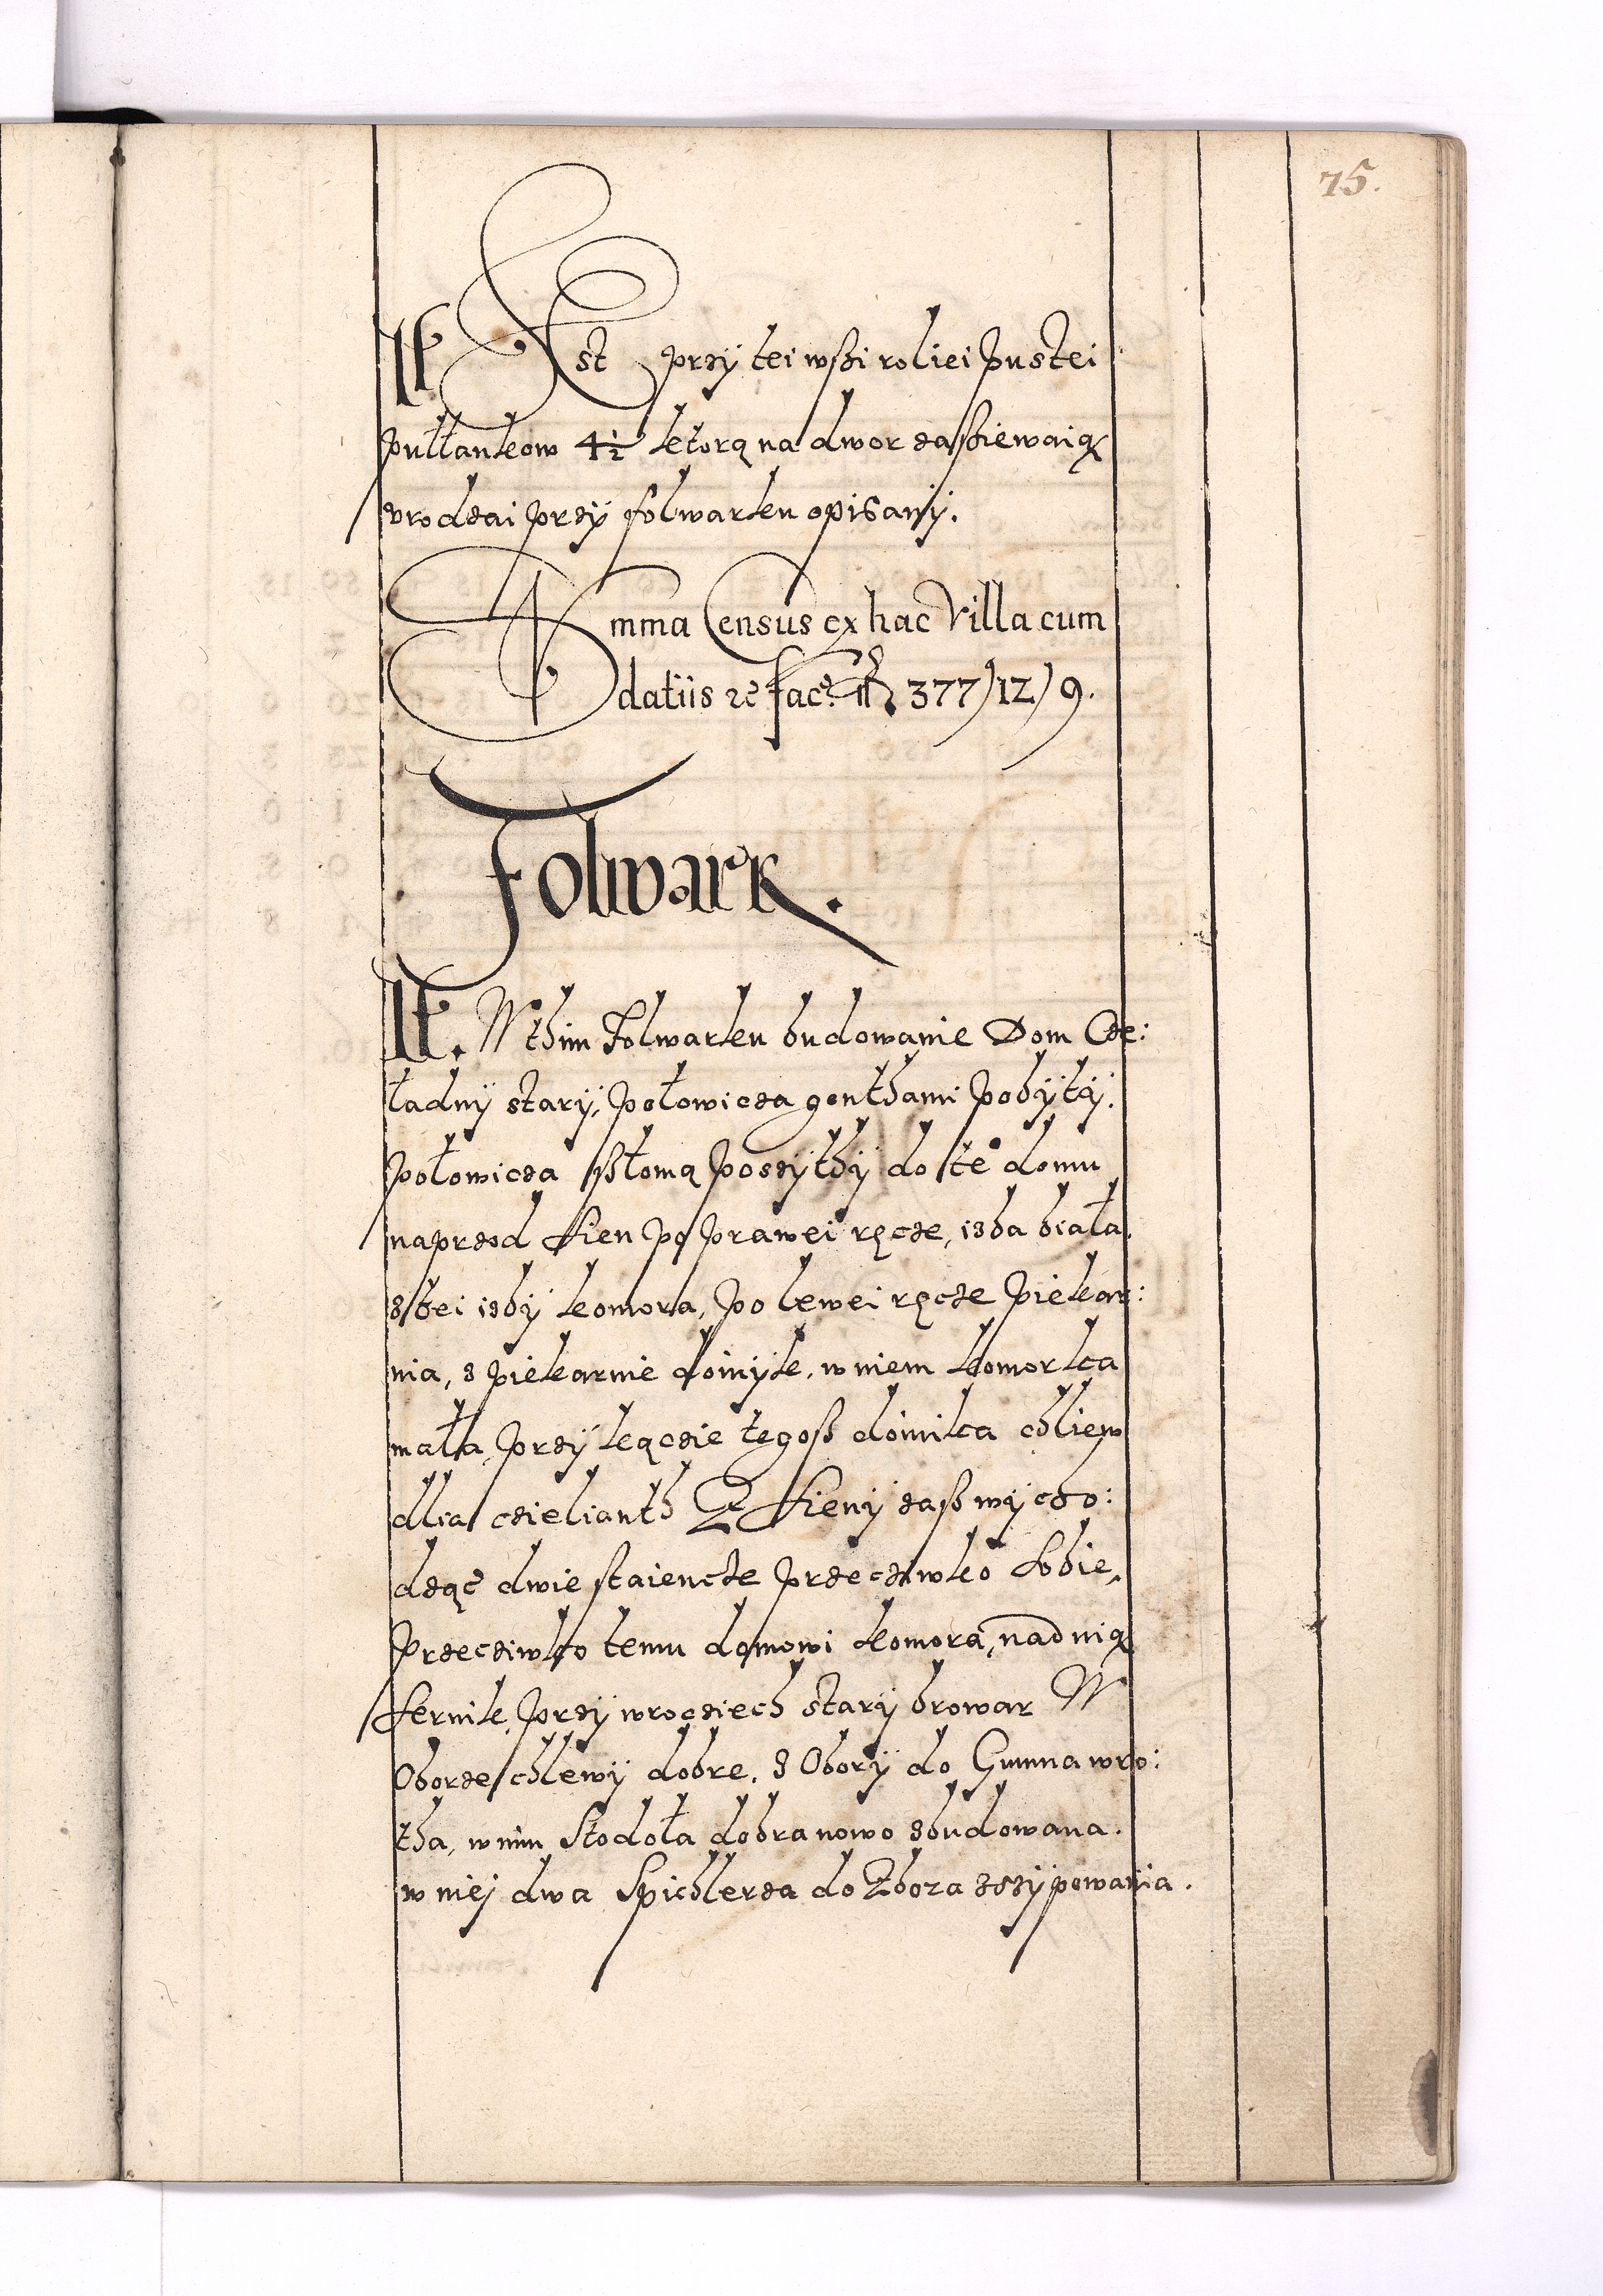 75.
It Est przÿ tei wßi roliei pustei
pułłankow 4½ ktorą na dwor zaßiewaią
vrodzai przÿ folwarku opisanÿ.
Summa Census ex hac Villa cum
datiis 377/12/9.
Folwark.
It. W thim Folwarku budowanie Dom Cze:
ladnÿ starÿ, połowicza gonthami pobÿtÿ.
połowicza słomą poszÿthÿ do te° domu
naprzod sien po prawei ręcze, izba biała.
z tei izbÿ komora, po lewei ręcze piekar:
nia, z piekarnie domÿk, w niem komorka
mała, przÿ kączie tegoß domka chliew
dlia czielianth Z sieni zaß wÿcho:
dząc dwie staiencze przecziwko sobie,
Przecziwko temu domowi komora, nad nią
sernik, przÿ wrociech starÿ browar W
Oborze chlewÿ dobre, z Oborÿ do Gumna wro:
tha, w nim Stodoła dobra nowo zbudowana.
w niej dwa Spichlerza do Zboza zsÿpowania.